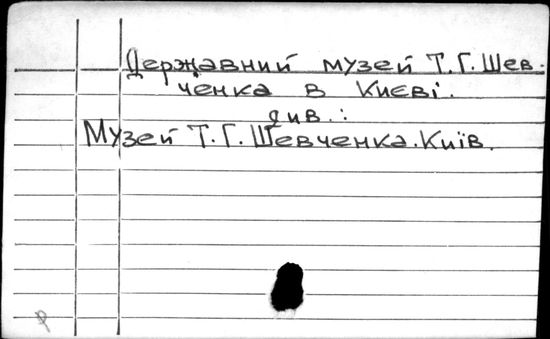 Державний музей Т.Г.Шев-
ченка в Києві.
див.:
Музей Т.Г.Шевченка.Київ.